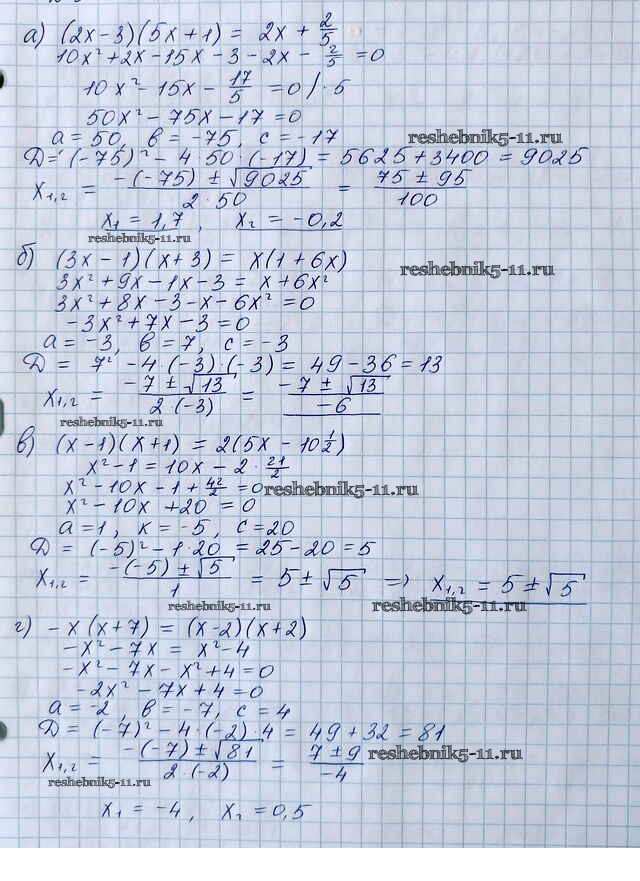 а) (2x-3)(5x+1) = 2x + 2/5
10x² + 2x - 15x - 3 - 2x - 2/5 = 0
10x² - 15x - 17/5 = 0 / · 5
50x² - 75x - 17 = 0
a = 50, b = -75, c = -17 reshebnik5-11.ru
D = (-75)² - 4 · 50 · (-17) = 5625 + 3400 = 9025
x₁,₂ = (-(-75) ± √9025) / (2 · 50) = (75 ± 95) / 100
x₁ = 1,7, x₂ = -0,2
reshebnik5-11.ru
б) (3x - 1)(x + 3) = x(1 + 6x) reshebnik5-11.ru
3x² + 9x - 1x - 3 = x + 6x²
3x² + 8x - 3 - x - 6x² = 0
-3x² + 7x - 3 = 0
a = -3, b = 7, c = -3
D = 7² - 4 · (-3) · (-3) = 49 - 36 = 13
x₁,₂ = (-7 ± √13) / (2 · (-3)) = (-7 ± √13) / -6
reshebnik5-11.ru
в) (x-1)(x+1) = 2(5x - 10 1/2)
x² - 1 = 10x - 2 · 21/2
x² - 10x - 1 + 42/2 = 0 reshebnik5-11.ru
x² - 10x + 20 = 0
a = 1, k = -5, c = 20
D = (-5)² - 1 · 20 = 25 - 20 = 5
x₁,₂ = (-(-5) ± √5) / 1 = 5 ± √5 => x₁,₂ = 5 ± √5
reshebnik5-11.ru reshebnik5-11.ru
г) -x(x+7) = (x-2)(x+2)
-x² - 7x = x² - 4
-x² - 7x - x² + 4 = 0
-2x² - 7x + 4 = 0
a = -2, b = -7, c = 4
D = (-7)² - 4 · (-2) · 4 = 49 + 32 = 81
x₁,₂ = (-(-7) ± √81) / (2 · (-2)) = (7 ± 9) / -4 reshebnik5-11.ru
reshebnik5-11.ru
x₁ = -4, x₂ = 0,5